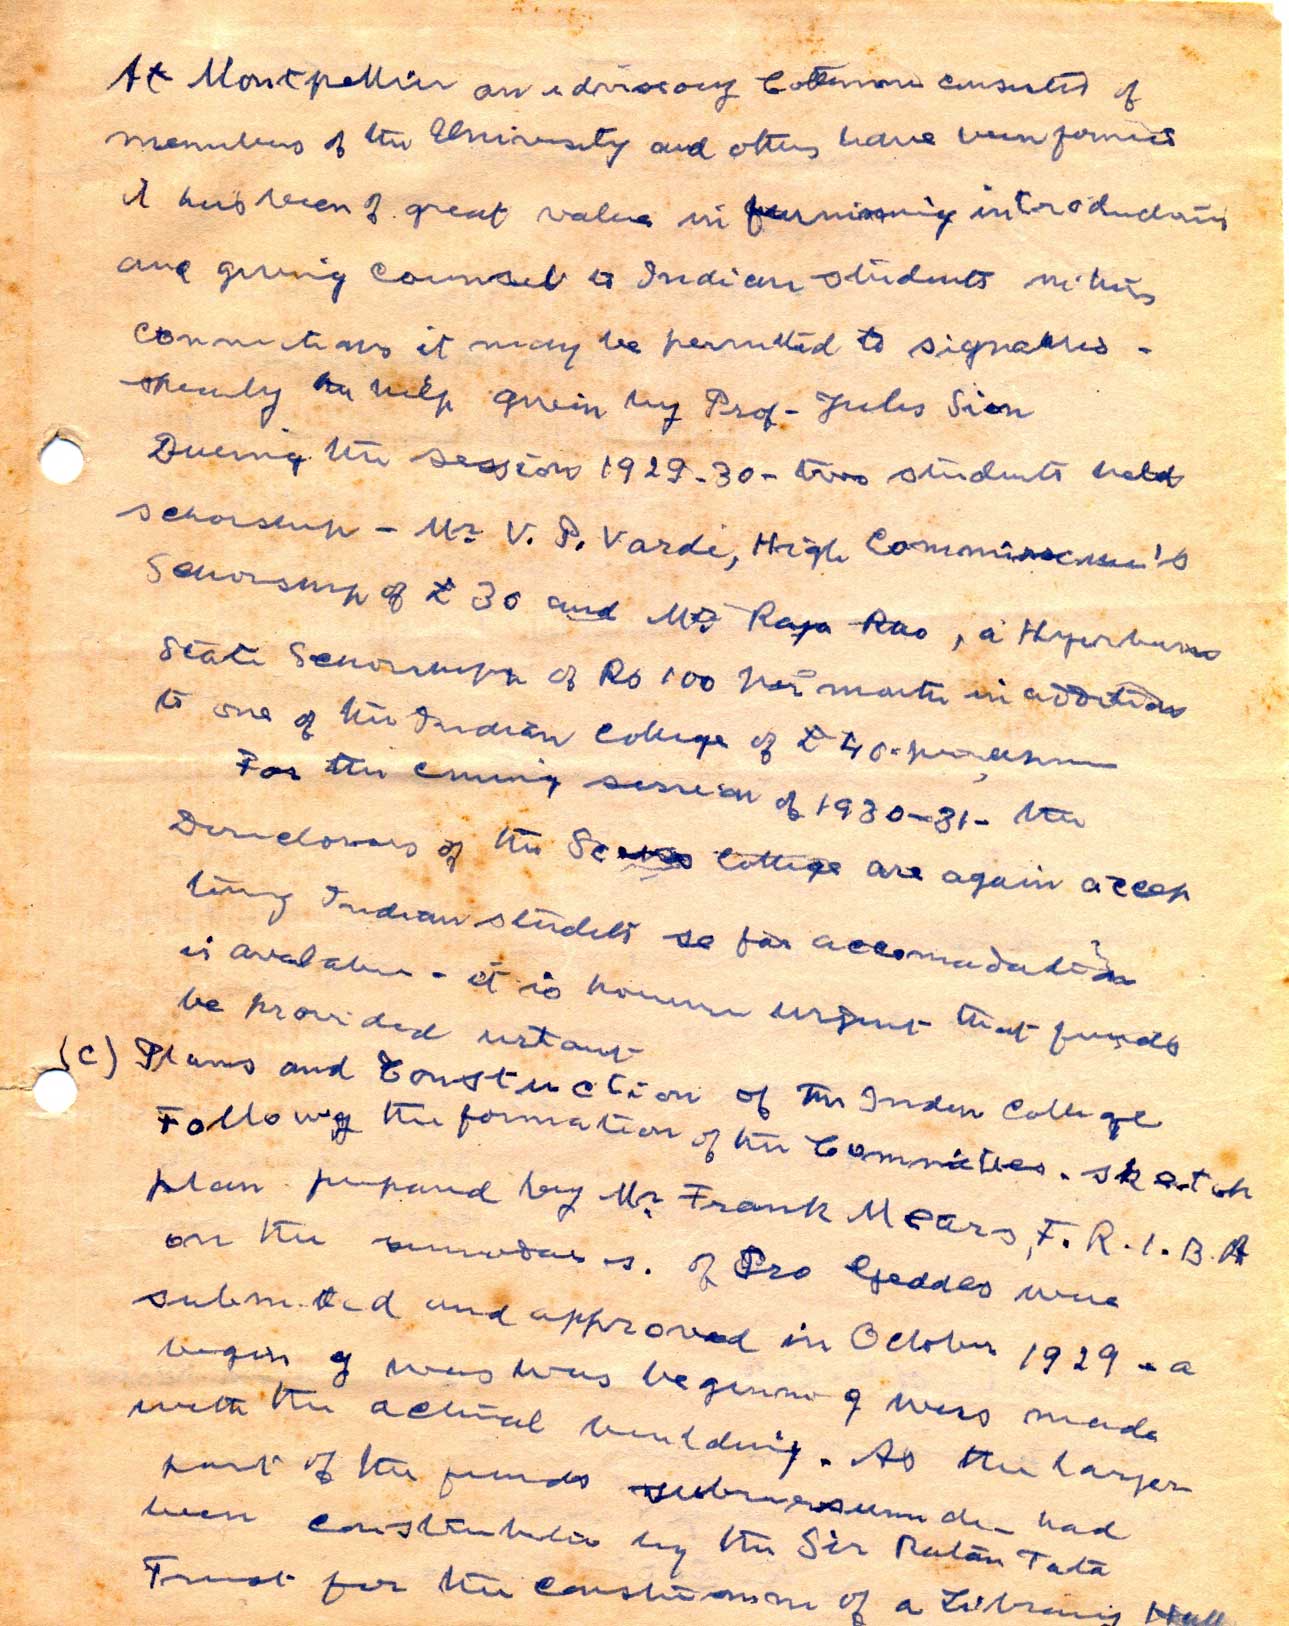 At Montpellier an advisory Committee consisted of
members of the University and others have been formed
it has been of great value in furnishing introductions
and giving counsel to Indian students in this
connections it may be permitted to signalise -
specially the help given by Prof - Jules Sion
During the session 1929-30 - two students held
scholarship - Mr V. P. Varde, High Commissioner's
Scholarship of £ 30 and Mr Raja Rao, a Hyderbad
State Scholarship of Rs 100 per month in addition
to one of the Indian College of £ 40.
For the coming session of 1930-31 - the
Directors of the Scots College are again accep
ting Indian students so far accomadation
is avalable - it is however urgent that funds
be provided
(C) Plans and Construction of the Indian College
Following the formation of the Committee. sketch
plan prepared by Mr Frank Mears, F. R. I. B. A
on the of Pro Geddes were
submitted and approved in October 1929 - a
begin g was was beginning was made
with the actual building. As the larger
part of the funds had
been constributed by the Sir Ratan Tata
Trust for the of a Library Hall